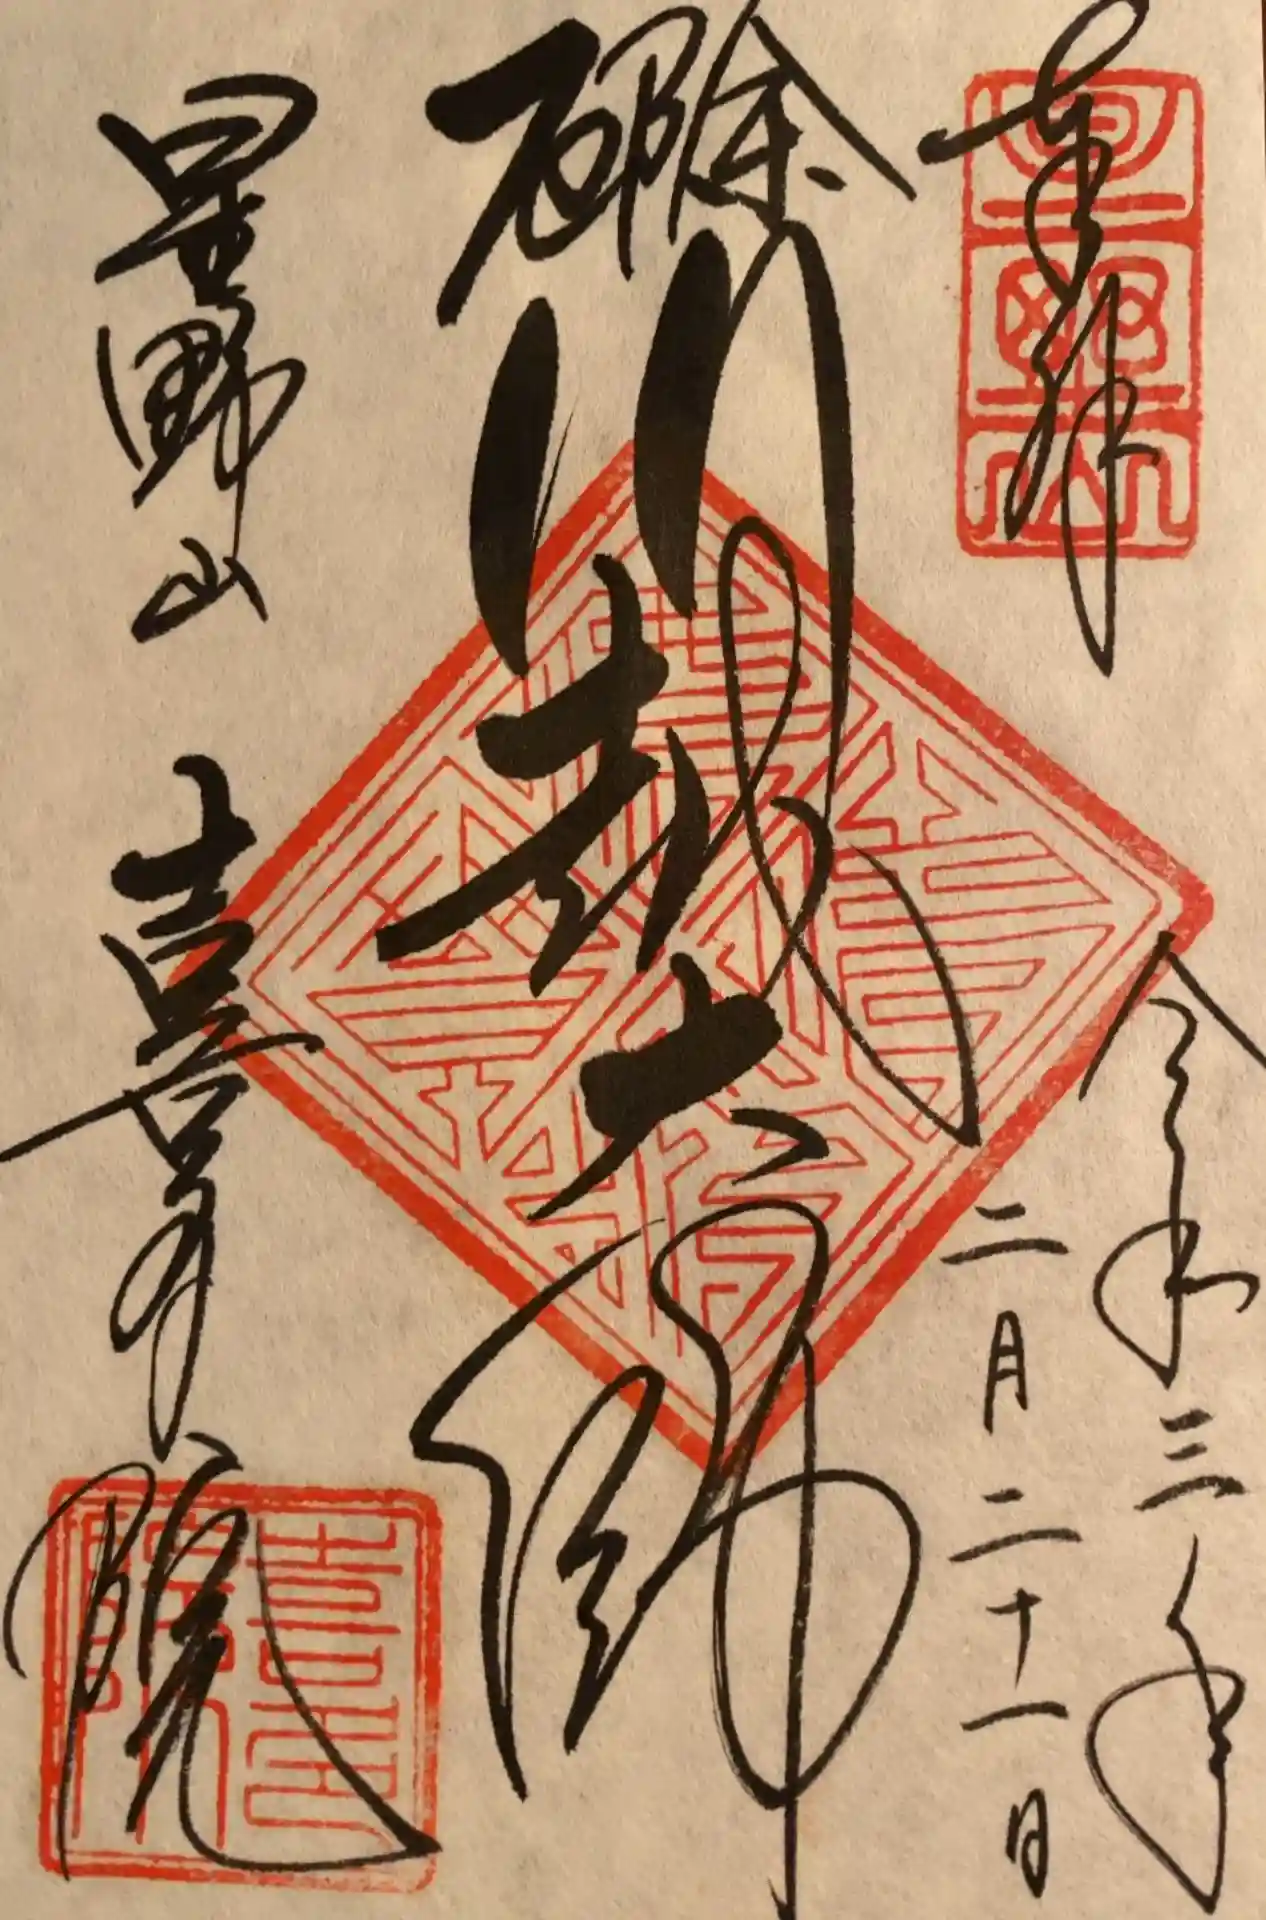 奉拝
令和三年
二月二十一日
厄除川越大師
星野山 喜多院
喜多院